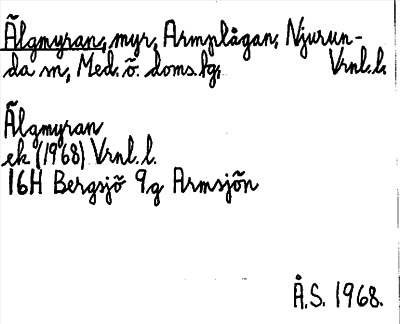 Älgmyran, myr, Armplågan, Njurun-
da sn, Med. ö. doms.hg, Vrnl. l.
Älgmyran
ek (1968) Vrnl. l.
16H Bergsjö 9g Armsjön
Å.S. 1968.